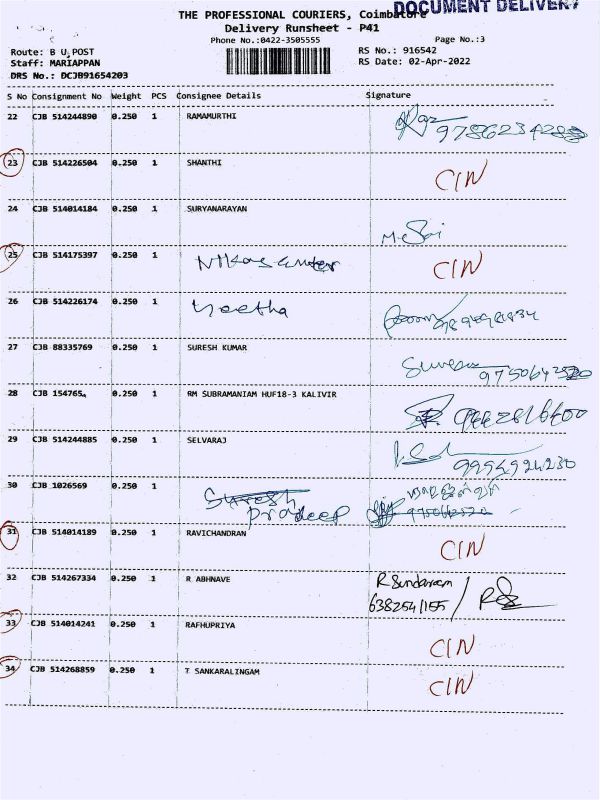 DOCUMENT DELIVERY
THE PROFESSIONAL COURIERS, Coimbatore
Delivery Runsheet - P41
Phone No.:0422-3505555 Page No.:3
Route: B U POST RS No.: 916542
Staff: MARIAPPAN RS Date: 02-Apr-2022
DRS No.: DCJB91654203
S No Consignment No Weight PCS Consignee Details Signature
22 CJB 514244890 0.250 1 RAMAMURTHI
23 CJB 514226504 0.250 1 SHANTHI CIN
24 CJB 514014184 0.250 1 SURYANARAYAN
25 CJB 514175397 0.250 1 CIN
26 CJB 514226174 0.250 1 Geetha
27 CJB 88335769 0.250 1 SURESH KUMAR Suresh
28 CJB 154765 0.250 1 RM SUBRAMANIAM HUF18-3 KALIVIR
29 CJB 514244885 0.250 1 SELVARAJ 9994924230
30 CJB 1026569 0.250 1 Suresh
Pradeep
31 CJB 514014189 0.250 1 RAVICHANDRAN CIN
32 CJB 514267334 0.250 1 R ABHNAVE R Sundaram
6382541155
33 CJB 514014241 0.250 1 RAFHUPRIYA CIN
34 CJB 514268859 0.250 1 T SANKARALINGAM CIN